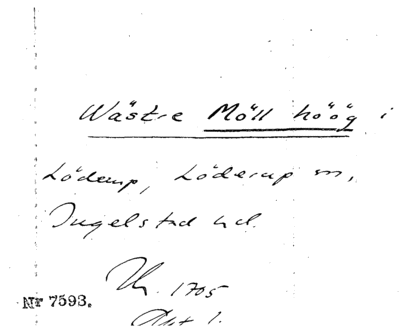 Wästre Möll höög i
Löderup, Löderup sn,
Ingelstad hd.
Lh. 1705
Akt 1.
Nr 7593.